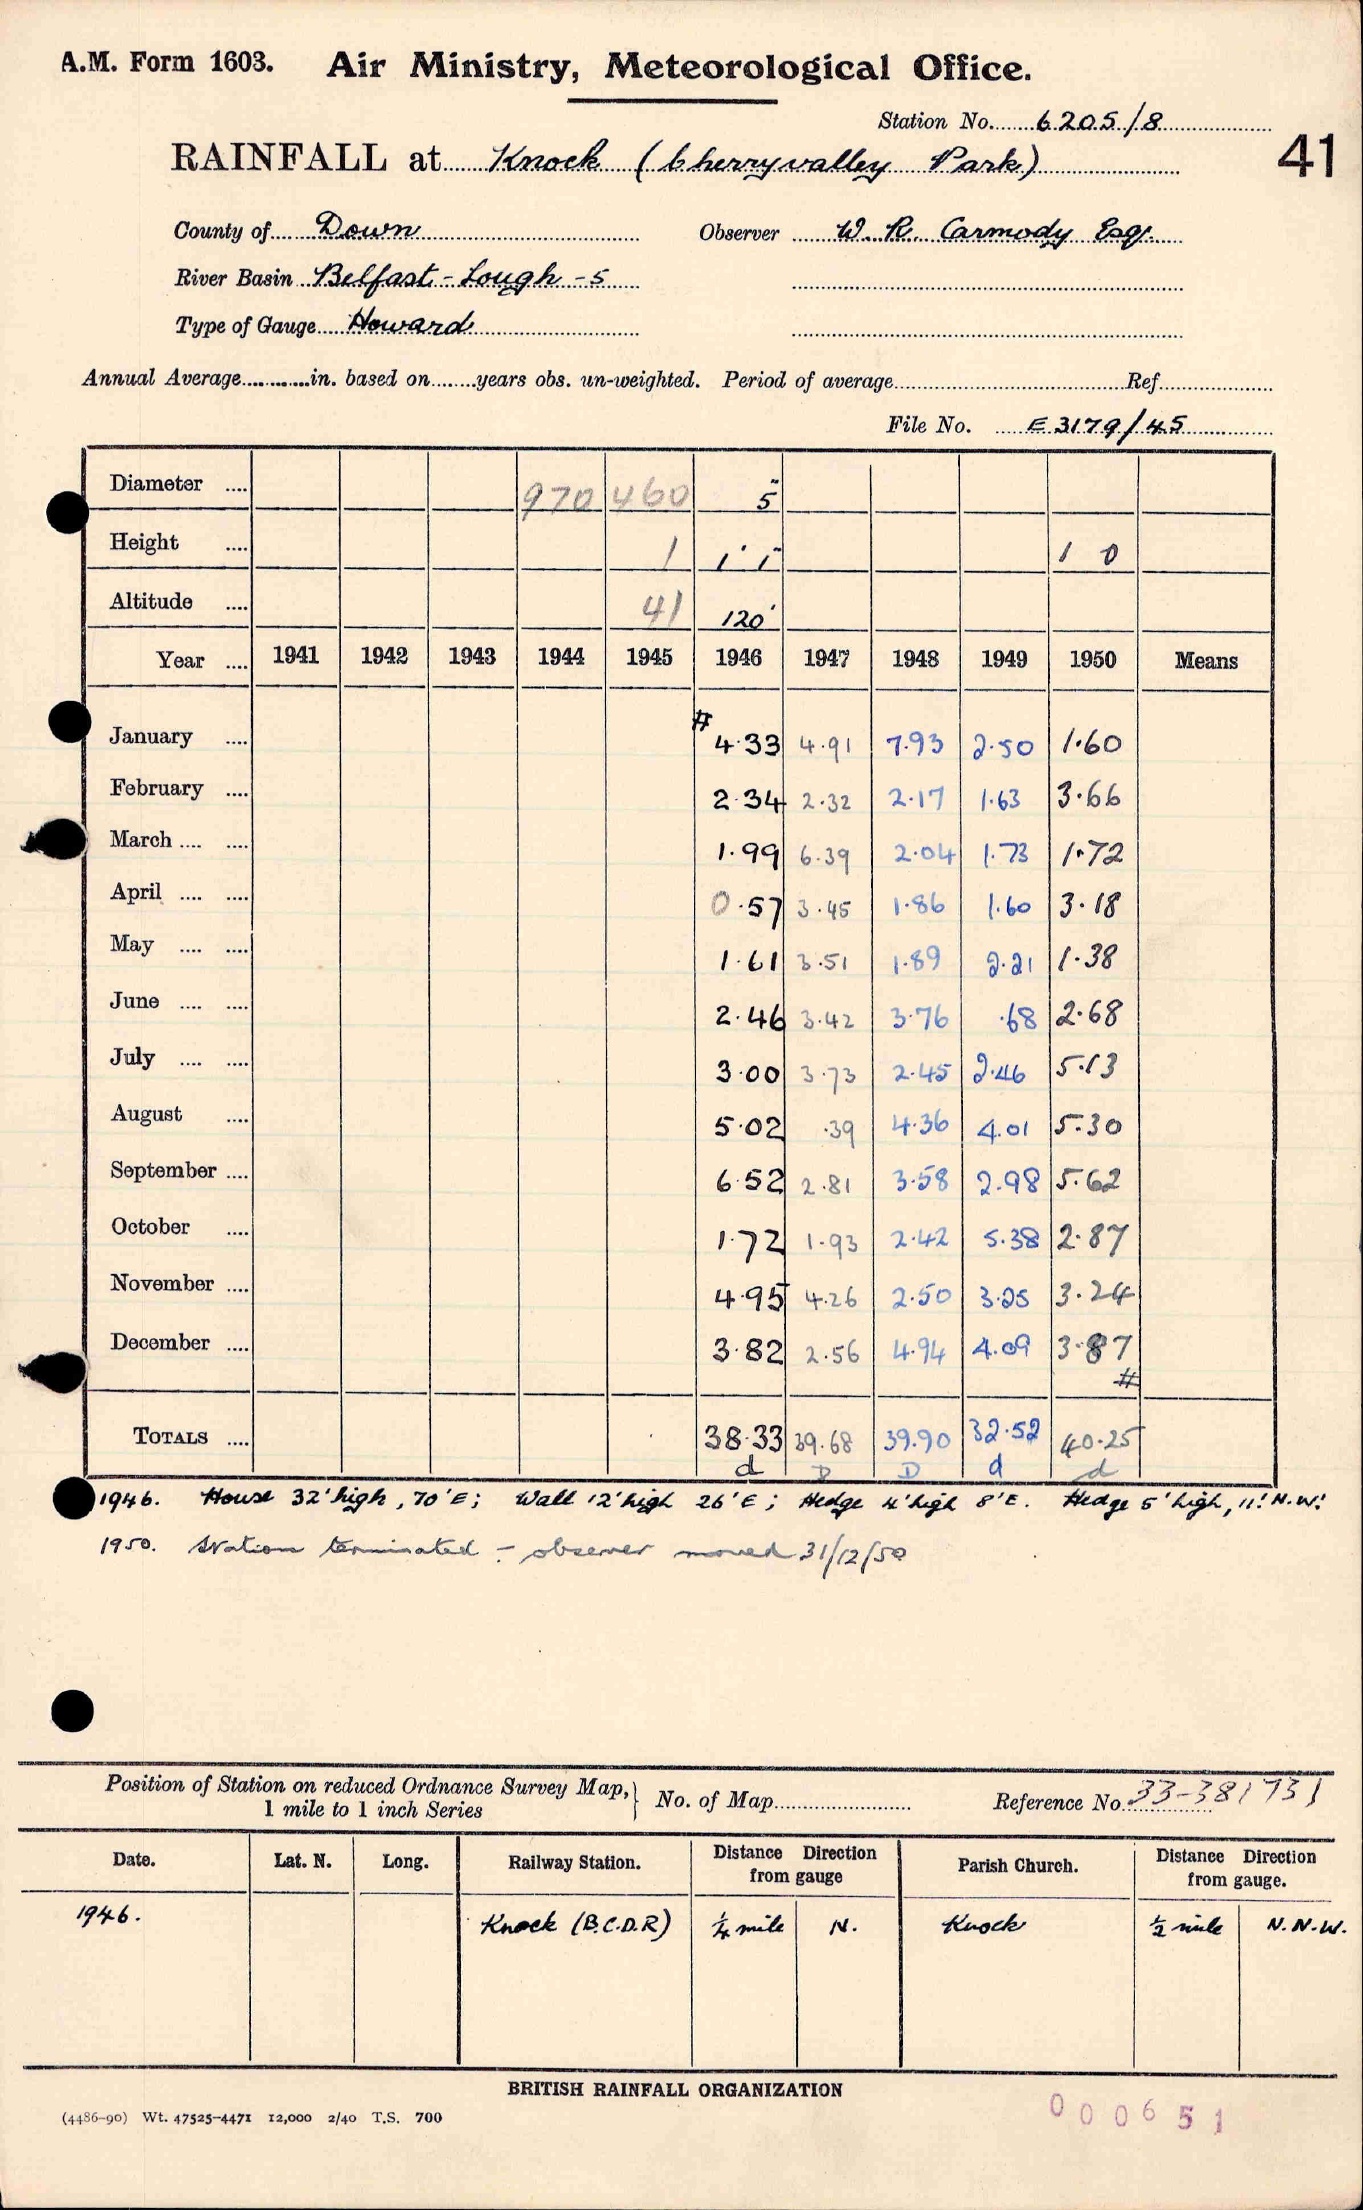 A.M. Form 1603. Air Ministry, Meteorological Office.
Station No. 6205/8
RAINFALL at Knock (Cherryvalley Park) 41
County of Down Observer W. R. Carmody Esq.
River Basin Belfast-Lough-5
Type of Gauge Howard
Annual Average............in. based on........years obs. un-weighted. Period of average.................Ref.................
File No. E 3179/45
Diameter .... 970 460 5"
Height .... 1 1' 1" 1 0
Altitude .... 41 120'
Year .... 1941 1942 1943 1944 1945 1946 1947 1948 1949 1950 Means
January .... # 4.33 4.91 7.93 2.50 1.60
February .... 2.34 2.32 2.17 1.63 3.66
March .... .... 1.99 6.39 2.04 1.73 1.72
April .... .... 0.57 3.45 1.86 1.60 3.18
May .... .... 1.61 3.51 1.89 2.21 1.38
June .... .... 2.46 3.42 3.76 .68 2.68
July .... .... 3.00 3.73 2.45 2.46 5.13
August .... 5.02 .39 4.36 4.01 5.30
September .... 6.52 2.81 3.58 2.98 5.62
October .... 1.72 1.93 2.42 5.38 2.87
November .... 4.95 4.26 2.50 3.25 3.24
December .... 3.82 2.56 4.94 4.09 3.87
#
TOTALS .... 38.33 39.68 39.90 32.52 40.25
d D D d d
1946. House 32' high, 70' E; Wall 12' high 26' E; Hedge 4' high 8' E. Hedge 5' high, 11' N.W.
1950. Station terminated - observer moved 31/12/50
Position of Station on reduced Ordnance Survey Map, 1 mile to 1 inch Series } No. of Map........................ Reference No. 33-381731
Date. Lat. N. Long. Railway Station. Distance Direction from gauge Parish Church. Distance Direction from gauge.
1946. Knock (B.C.D.R) ¼ mile N. Knock ½ mile N.N.W.
BRITISH RAINFALL ORGANIZATION
(4486-90) Wt. 47525-4471 12,000 2/40 T.S. 700
000651